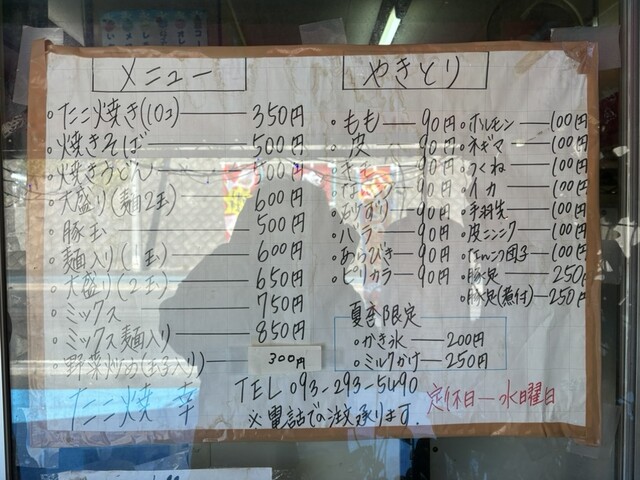 メニュー
たこ焼き(10コ) 350円
焼きそば 500円
焼きうどん 500円
大盛り(麺2玉) 600円
豚玉 500円
麺入り(1玉) 600円
大盛り(2玉) 650円
ミックス 750円
ミックス麺入り 850円
野菜炒め(玉子入り) 300円
たこ焼 幸
やきとり
もも 90円
皮 90円
90円
90円
90円
バラ 90円
あらびき 90円
ピリカラ 90円
ホルモン 100円
ネギマ 100円
つくね 100円
イカ 100円
手羽先 100円
皮ニンニク 100円
だんご 100円
豚足 250円
豚足(煮付) 250円
夏季限定
かき氷 200円
ミルクかけ 250円
TEL 093-293-5490
※電話での注文承ります。
定休日―水曜日